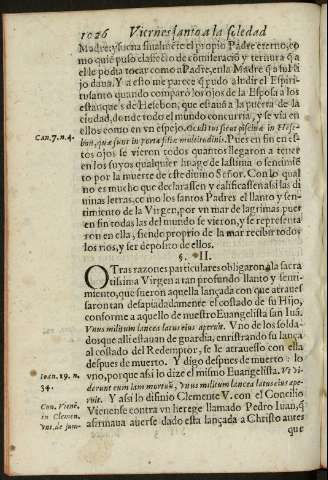 1026 Viernes santo a la soledad
Madre, y suena finalmẽte el propio Padre eterno, co
mo quiẽ puso clausulas de consideraciõ y ternura q̃ a
el le podia tocar como a Padre, en la Madre q̃ a su hi
jo dava. Y a esto me parece q̃ pudo aludir el Espiri-
tu santo quando comparò los ojos de la Esposa a los
estanques de Hesebon, que estauã a la puerta de la
ciudad, donde todo el mundo concurria, y se via en
ellos como en vn espejo. Oculi tui sicut piscinæ in Hese-
Can. 7. n. 4.
bon, quæ sunt in porta filiæ multitudinis. Pues en fin en es-
tos ojos se vieron todos quantos llegaron a tener
en los suyos qualquier linage de lastima o sentimiẽ-
to por la muerte de este divino Señor. Con lo qual
no es mucho que declarassen y calificassen a si las di
uinas letras, como los santos Padres el llanto y sen-
timiento de la Virgen, por vn mar de lagrimas pues
en fin todas las del mundo se vieron, y se representa
ron en ella, siendo proprio de la mar recibir todos
los rios, y ser deposito de ellos.
§. II.
OTras razones particulares obligaron a la sacra
tissima Virgen a tan profundo llanto y senti-
miento, que fueron aquella lançada con que atraues
saron tan desapiadadamente el costado de su Hijo,
conforme a aquello de nuestro Euangelista san Iuã.
Vnus militum lancea latus eius aperuit. Vno de los solda-
dos que alli estauan de guardia, enristrando su lança
al costado del Redemptor, se le atrauesso con ella
despues de muerto. Y digo despues de muerto lo
Ioan. 19. n.
34.
vno, porque assi lo dize el mismo Euangelista. Vt vi-
derunt eum iam mortuũ, vnus militum lancea latus eius ape-
ruit. Y assi lo difinio Clemente V. con el Concilio
Con. Vienẽ.
in Clemen.
Vienense contra vn herege llamado Pedro Iuan, q̃
afirmaua auerse dado esta lançada a Christo antes
que